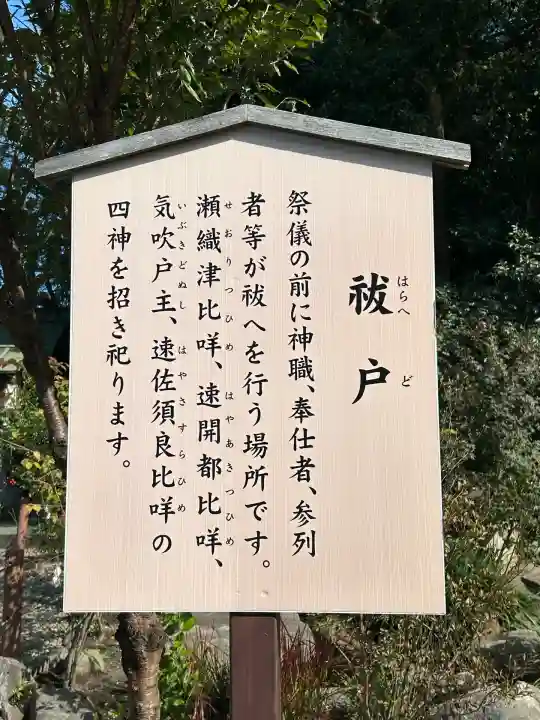 祓戸
はらへ ど
祭儀の前に神職、奉仕者、参列
者等が祓へを行う場所です。
瀬織津比咩、速開都比咩、
せおりつひめ はやあきつひめ
気吹戸主、速佐須良比咩の
いぶきどぬし はやさすらひめ
四神を招き祀ります。